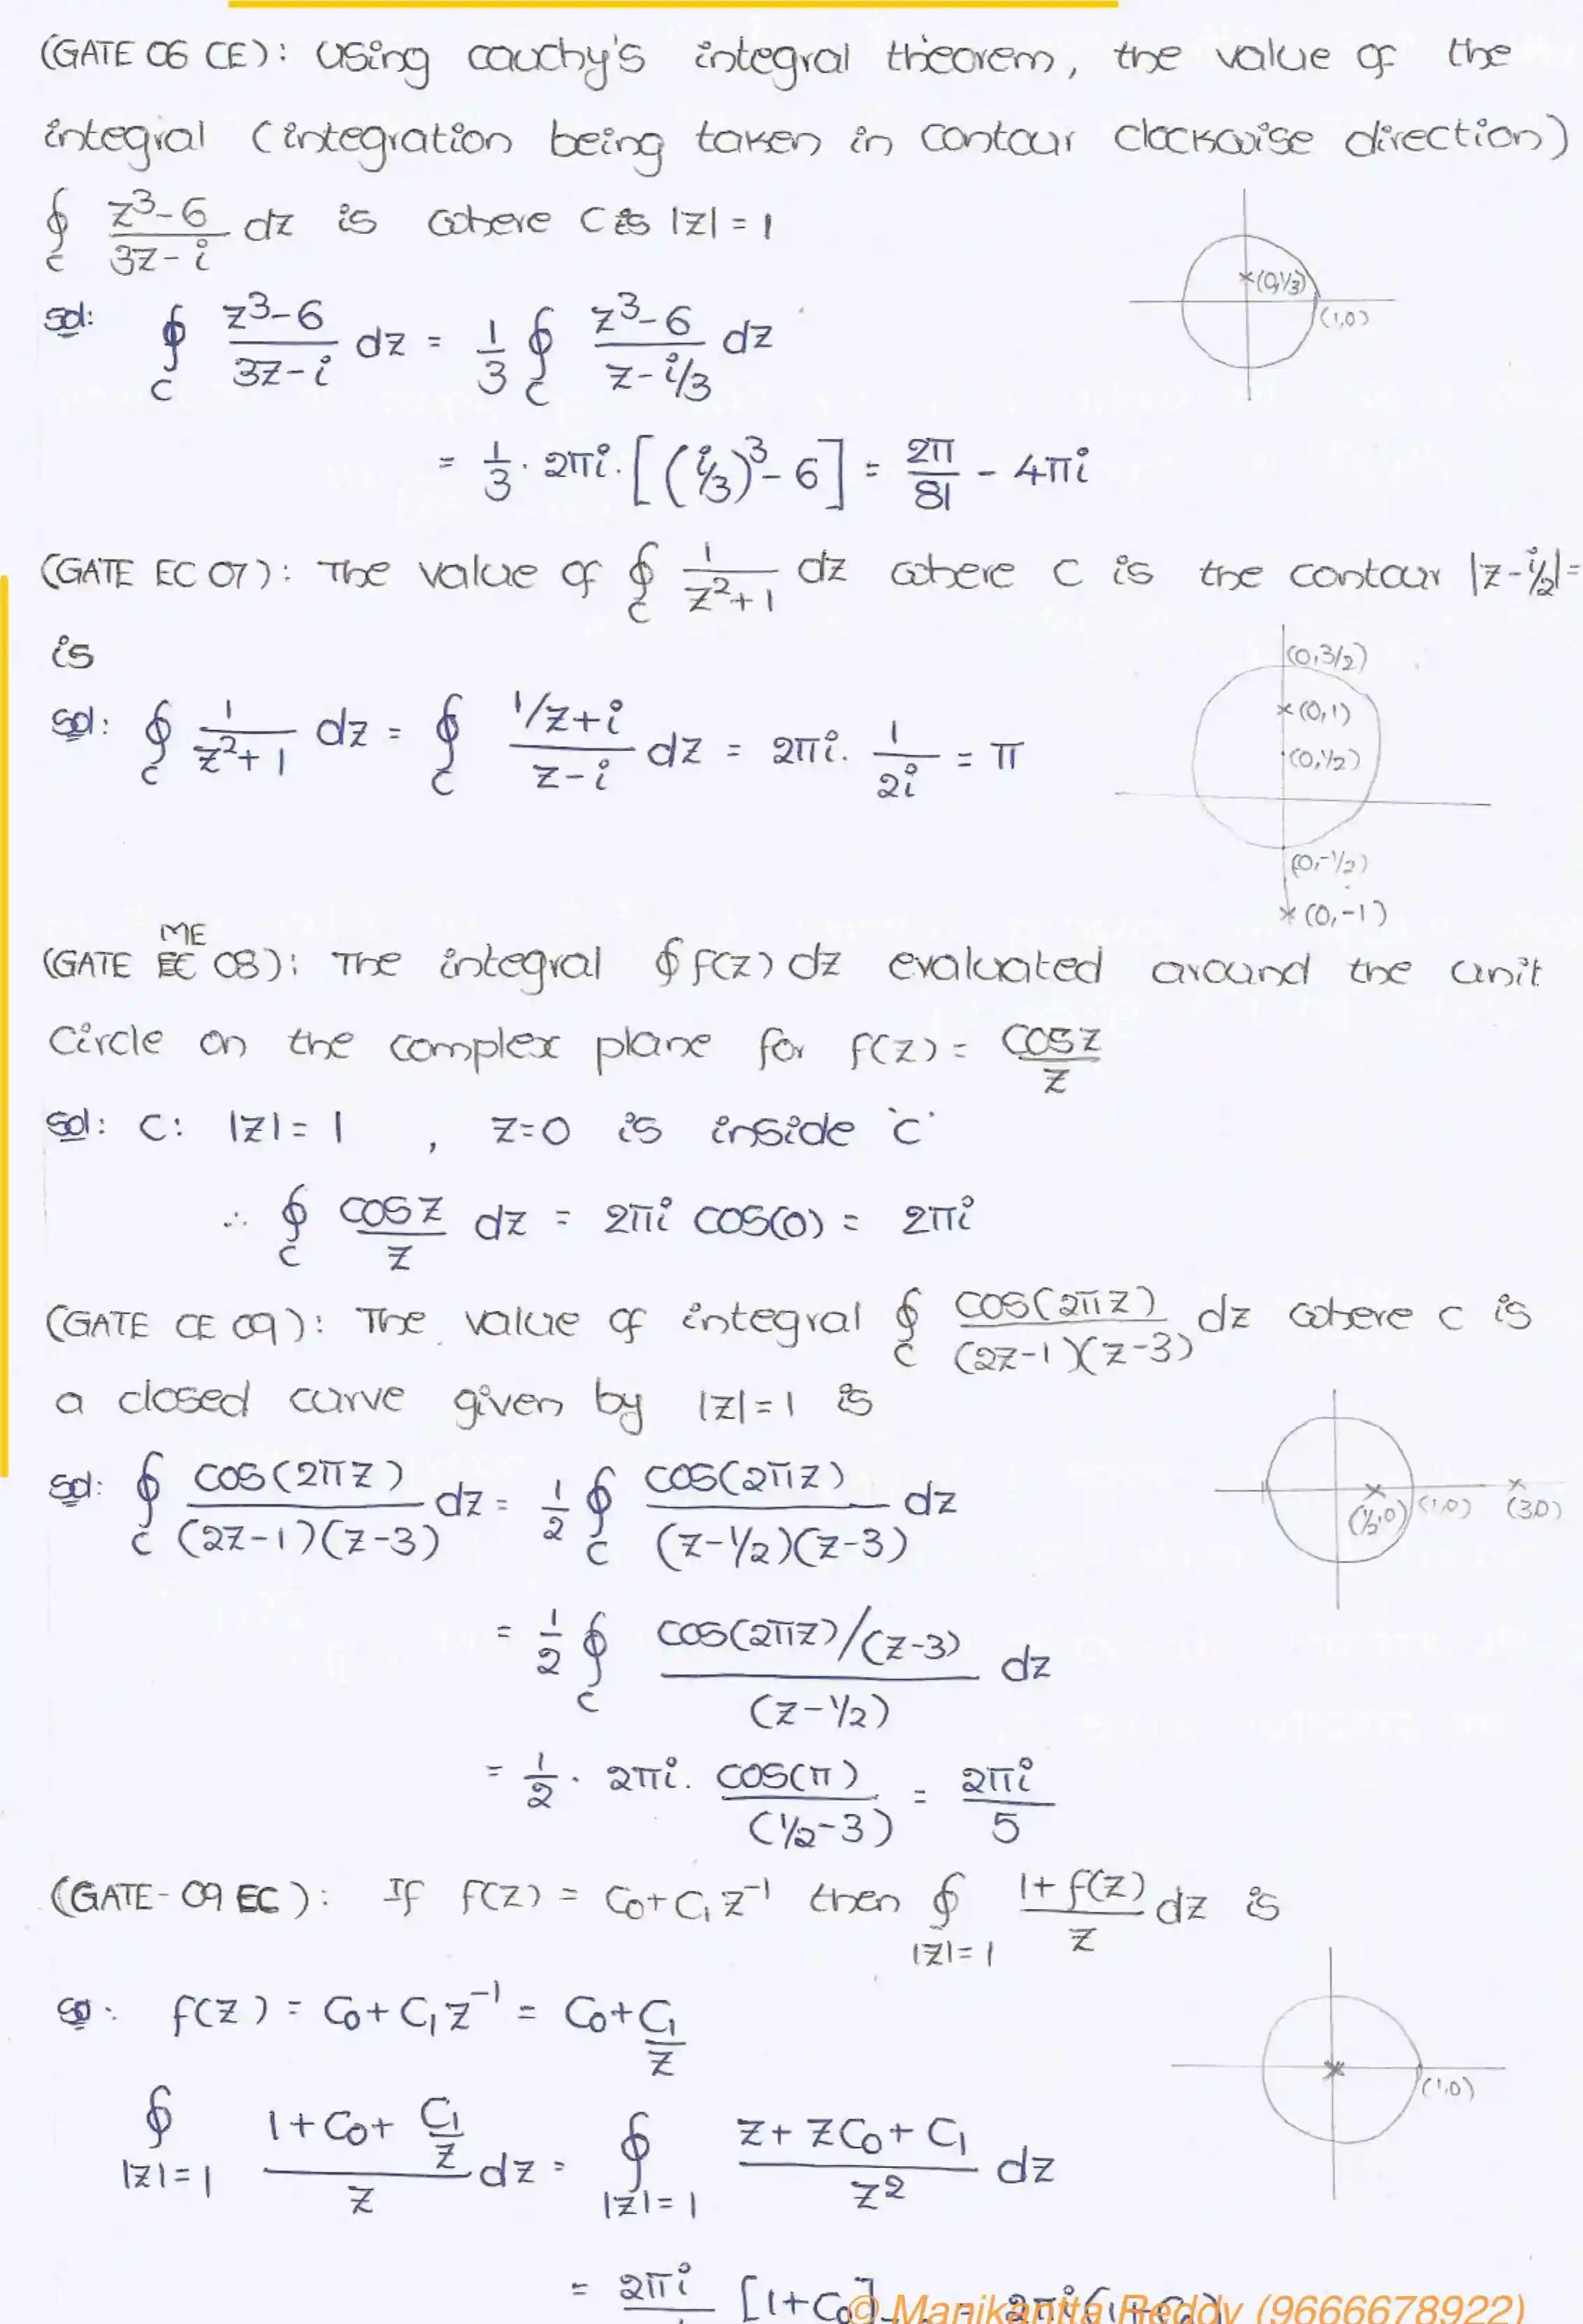 (GATE 06 CE): Using cauchy's integral theorem, the value of the
integral (integration being taken in contour clockwise direction)
∮_C (z³-6)/(3z-i) dz is where C is |z| = 1
(0,1/3)
(1,0)
Sol: ∮_C (z³-6)/(3z-i) dz = 1/3 ∮_C (z³-6)/(z-i/3) dz
= 1/3 · 2πi · [(i/3)³-6] = 2π/81 - 4πi
(GATE EC 07): The value of ∮_C 1/(z²+1) dz where C is the contour |z-i/2|=
is
(0,3/2)
(0,1)
(0,1/2)
(0,-1/2)
(0,-1)
Sol: ∮_C 1/(z²+1) dz = ∮_C (1/z+i)/(z-i) dz = 2πi · 1/2i = π
ME
(GATE EC 08): The integral ∮ f(z) dz evaluated around the unit
Circle on the complex plane for f(z) = cosz/z
Sol: C: |z| = 1 , z=0 is inside 'C'
∴ ∮_C cosz/z dz = 2πi cos(0) = 2πi
(GATE CE 09): The value of integral ∮_C cos(2πz)/((2z-1)(z-3)) dz where C is
a closed curve given by |z|=1 is
(1/2,0) (1,0) (3,0)
Sol: ∮_C cos(2πz)/((2z-1)(z-3)) dz = 1/2 ∮_C cos(2πz)/((z-1/2)(z-3)) dz
= 1/2 ∮_C (cos(2πz)/(z-3))/(z-1/2) dz
= 1/2 · 2πi · cos(π)/(1/2-3) = 2πi/5
(GATE-09 EC): If f(z) = C₀+C₁z⁻¹ then ∮_{|z|=1} (1+f(z))/z dz is
Sol: f(z) = C₀+C₁z⁻¹ = C₀+C₁/z
(1,0)
∮_{|z|=1} (1+C₀+C₁/z)/z dz = ∮_{|z|=1} (z+zC₀+C₁)/z² dz
= 2πi [1+C₀] = 2πi(1+C₀)
© Manikantta Reddy (9666678922)